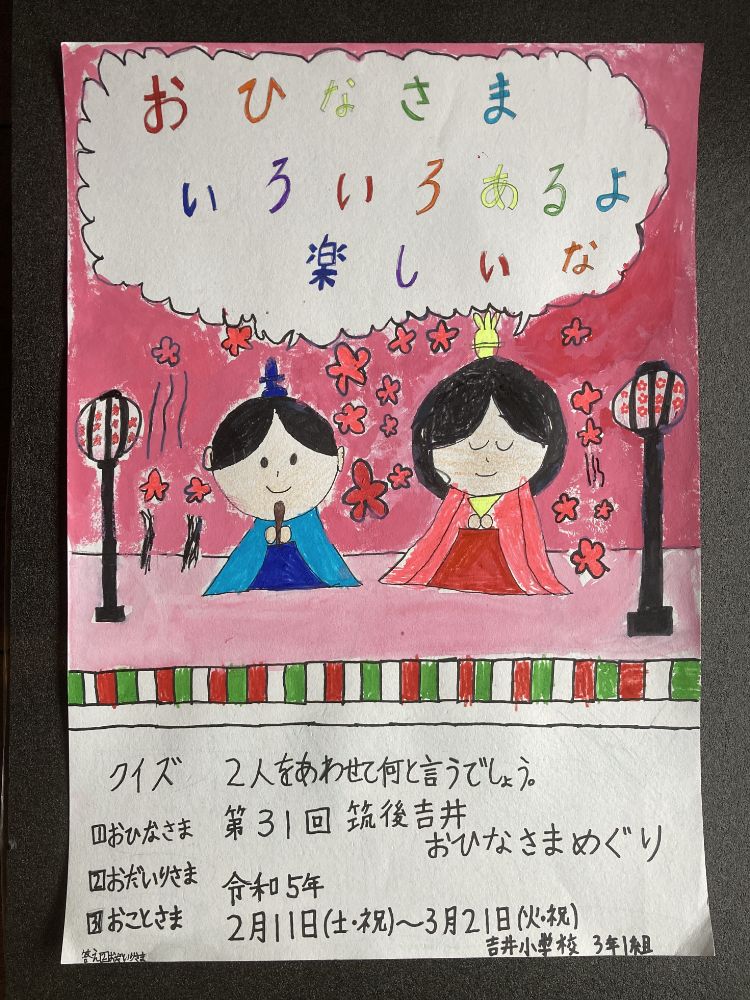 おひなさま
いろいろあるよ
楽しいな
クイズ 2人をあわせて何と言うでしょう。
1おひなさま
2おだいりさま
3おことさま
第31回 筑後吉井
おひなさまめぐり
令和5年
2月11日(土・祝)～3月21日(火・祝)
吉井小学校 3年1組
答え2おだいりさま